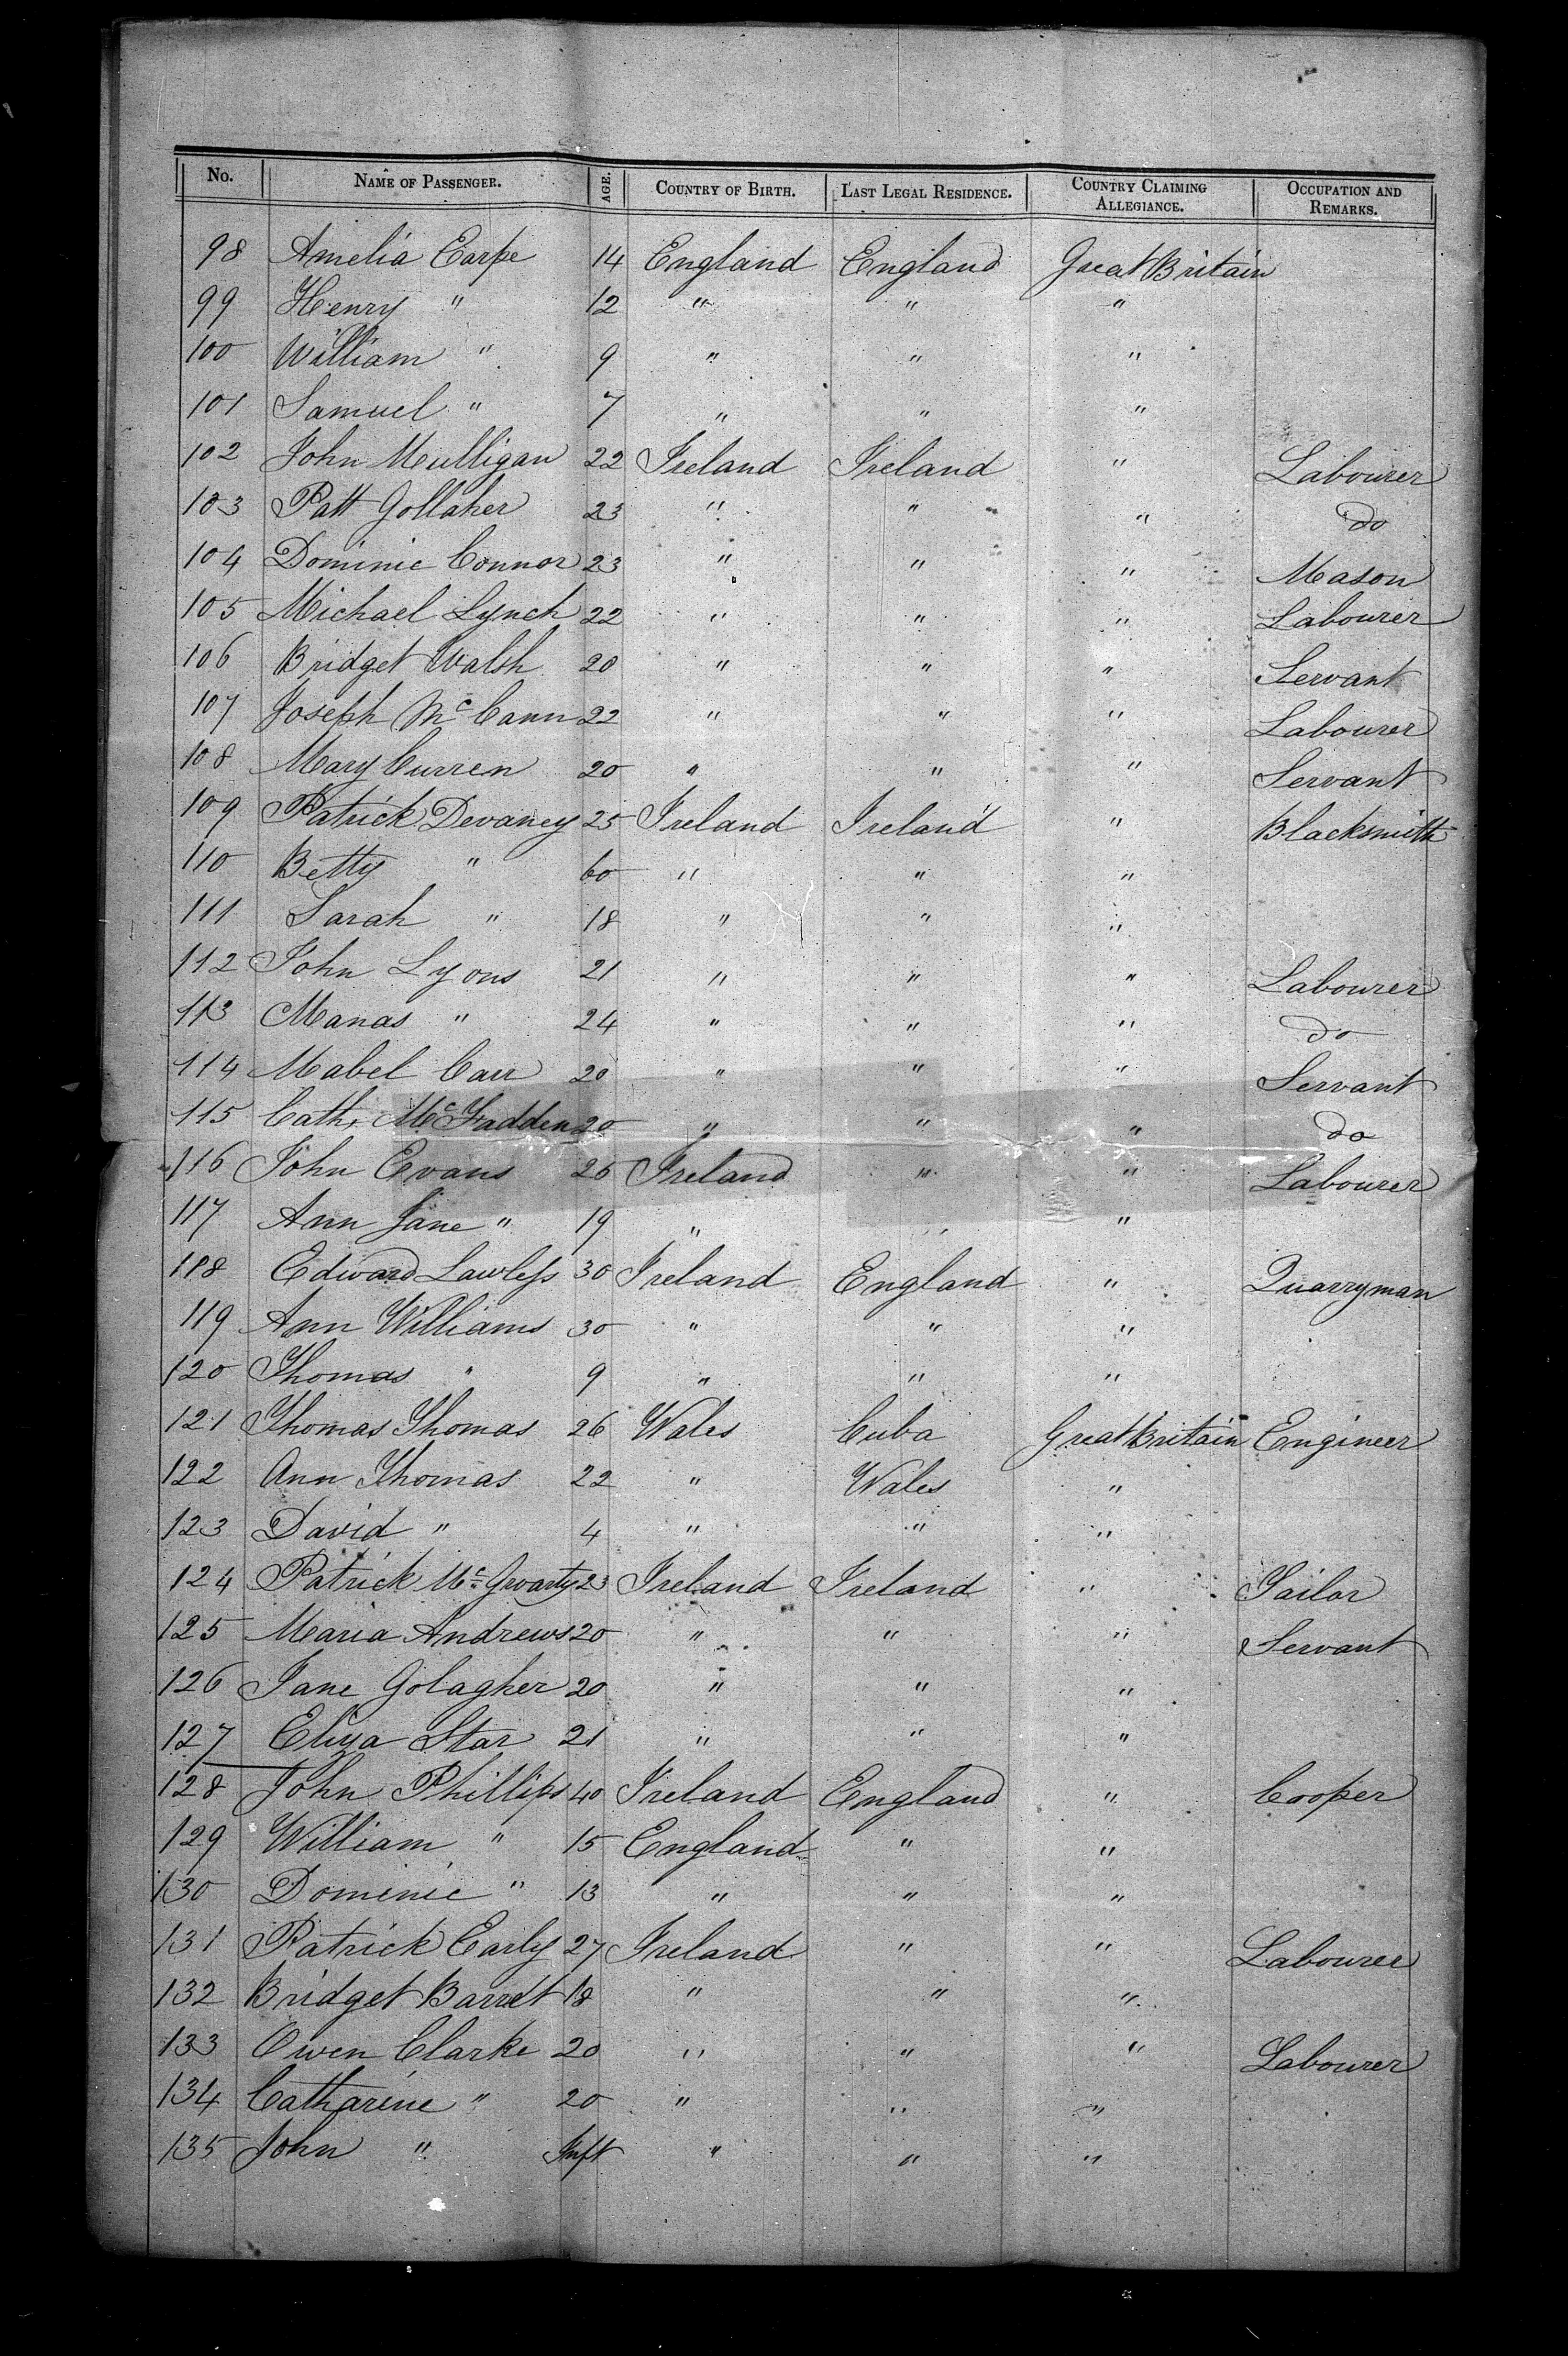 No. NAME OF PASSENGER. AGE. COUNTRY OF BIRTH. LAST LEGAL RESIDENCE. COUNTRY CLAIMING ALLEGIANCE. OCCUPATION AND REMARKS.
98 Amelia Earpe 14 England England Great Britain
99 Henry " 12 " " "
100 William " 9 " " "
101 Samuel " 7 " " "
102 John Mulligan 22 Ireland Ireland " Labourer
103 Patt Gollaher 23 " " " do
104 Dominic Connor 23 " " " Mason
105 Michael Lynch 22 " " " Labourer
106 Bridget Walsh 20 " " " Servant
107 Joseph McCann 22 " " " Labourer
108 Mary Curren 20 " " " Servant
109 Patrick Devaney 25 Ireland Ireland " Blacksmith
110 Betty " 60 " " "
111 Sarah " 18 " " "
112 John Lyons 21 " " " Labourer
113 Manas " 24 " " " do
114 Mabel Carr 20 " " " Servant
115 Cath. McFadden 20 " " " do
116 John Evans 25 Ireland " " Labourer
117 Ann Jane " 19 " " "
118 Edward Lawless 30 Ireland England " Quarryman
119 Ann Williams 30 " " "
120 Thomas " 9 " " "
121 Thomas Thomas 26 Wales Cuba Great Britain Engineer
122 Ann Thomas 22 " Wales "
123 David " 4 " " "
124 Patrick Mc 23 Ireland Ireland " Tailor
125 Maria Andrews 20 " " " Servant
126 Jane Golagher 20 " " "
127 Eliza Star 21 " " "
128 John Phillips 40 Ireland England " Cooper
129 William " 15 England " "
130 Dominic " 13 " " "
131 Patrick Early 27 Ireland " " Labourer
132 Bridget Barret 18 " " "
133 Owen Clarke 20 " " " Labourer
134 Catharine " 20 " " "
135 John " Inft " " "